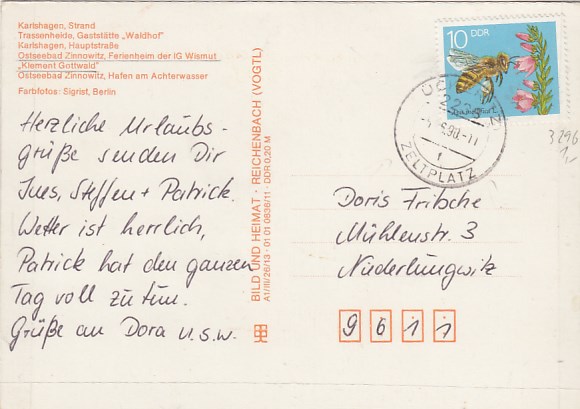 Karlshagen, Strand
Trassenheide, Gaststätte „Waldhof"
Karlshagen, Hauptstraße
Ostseebad Zinnowitz, Ferienheim der IG Wismut
„Klement Gottwald"
Ostseebad Zinnowitz, Hafen am Achterwasser
Farbfotos: Sigrist, Berlin
Herzliche Urlaubs-
grüße senden Dir
Ines, Steffen + Patrick.
Wetter ist herrlich,
Patrick hat den ganzen
Tag voll zu tun.
Grüße an Dora u.s.w.
BILD UND HEIMAT · REICHENBACH (VOGTL)
A1/III/26/13 · 01 01 0836/11 · DDR 0,20 M
10 DDR
ZELTPLATZ
3296
1,-
Doris Fritsche
Mühlenstr. 3
Niederlungwitz
9611